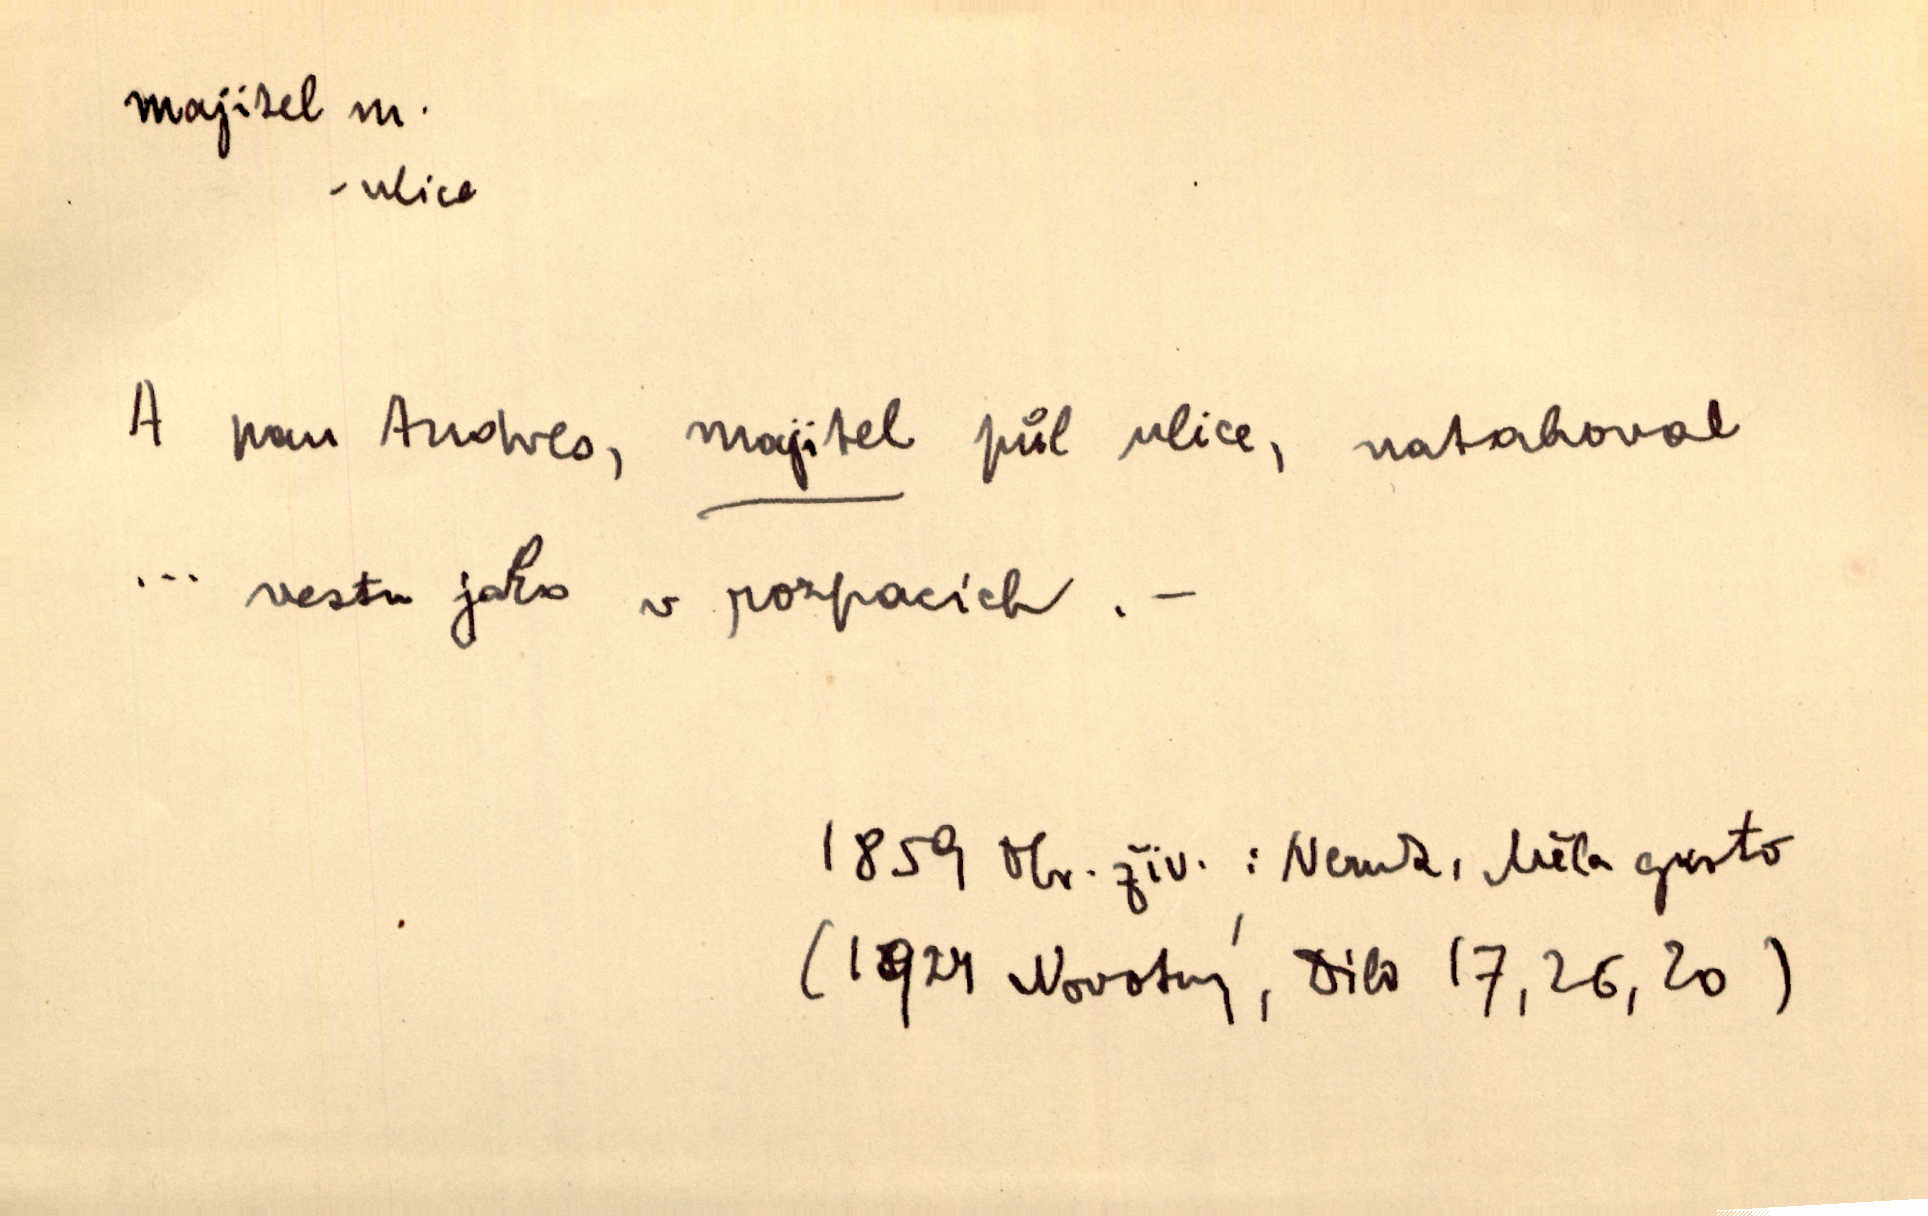 majitel m.
- ulice
A pan Andres, majitel půl ulice, natahoval
... vestu jako v rozpacích. -
1859 Obr. živ. : Nerud., Měla gusto
(1924 Novotný, Dílo 17, 26, 20)